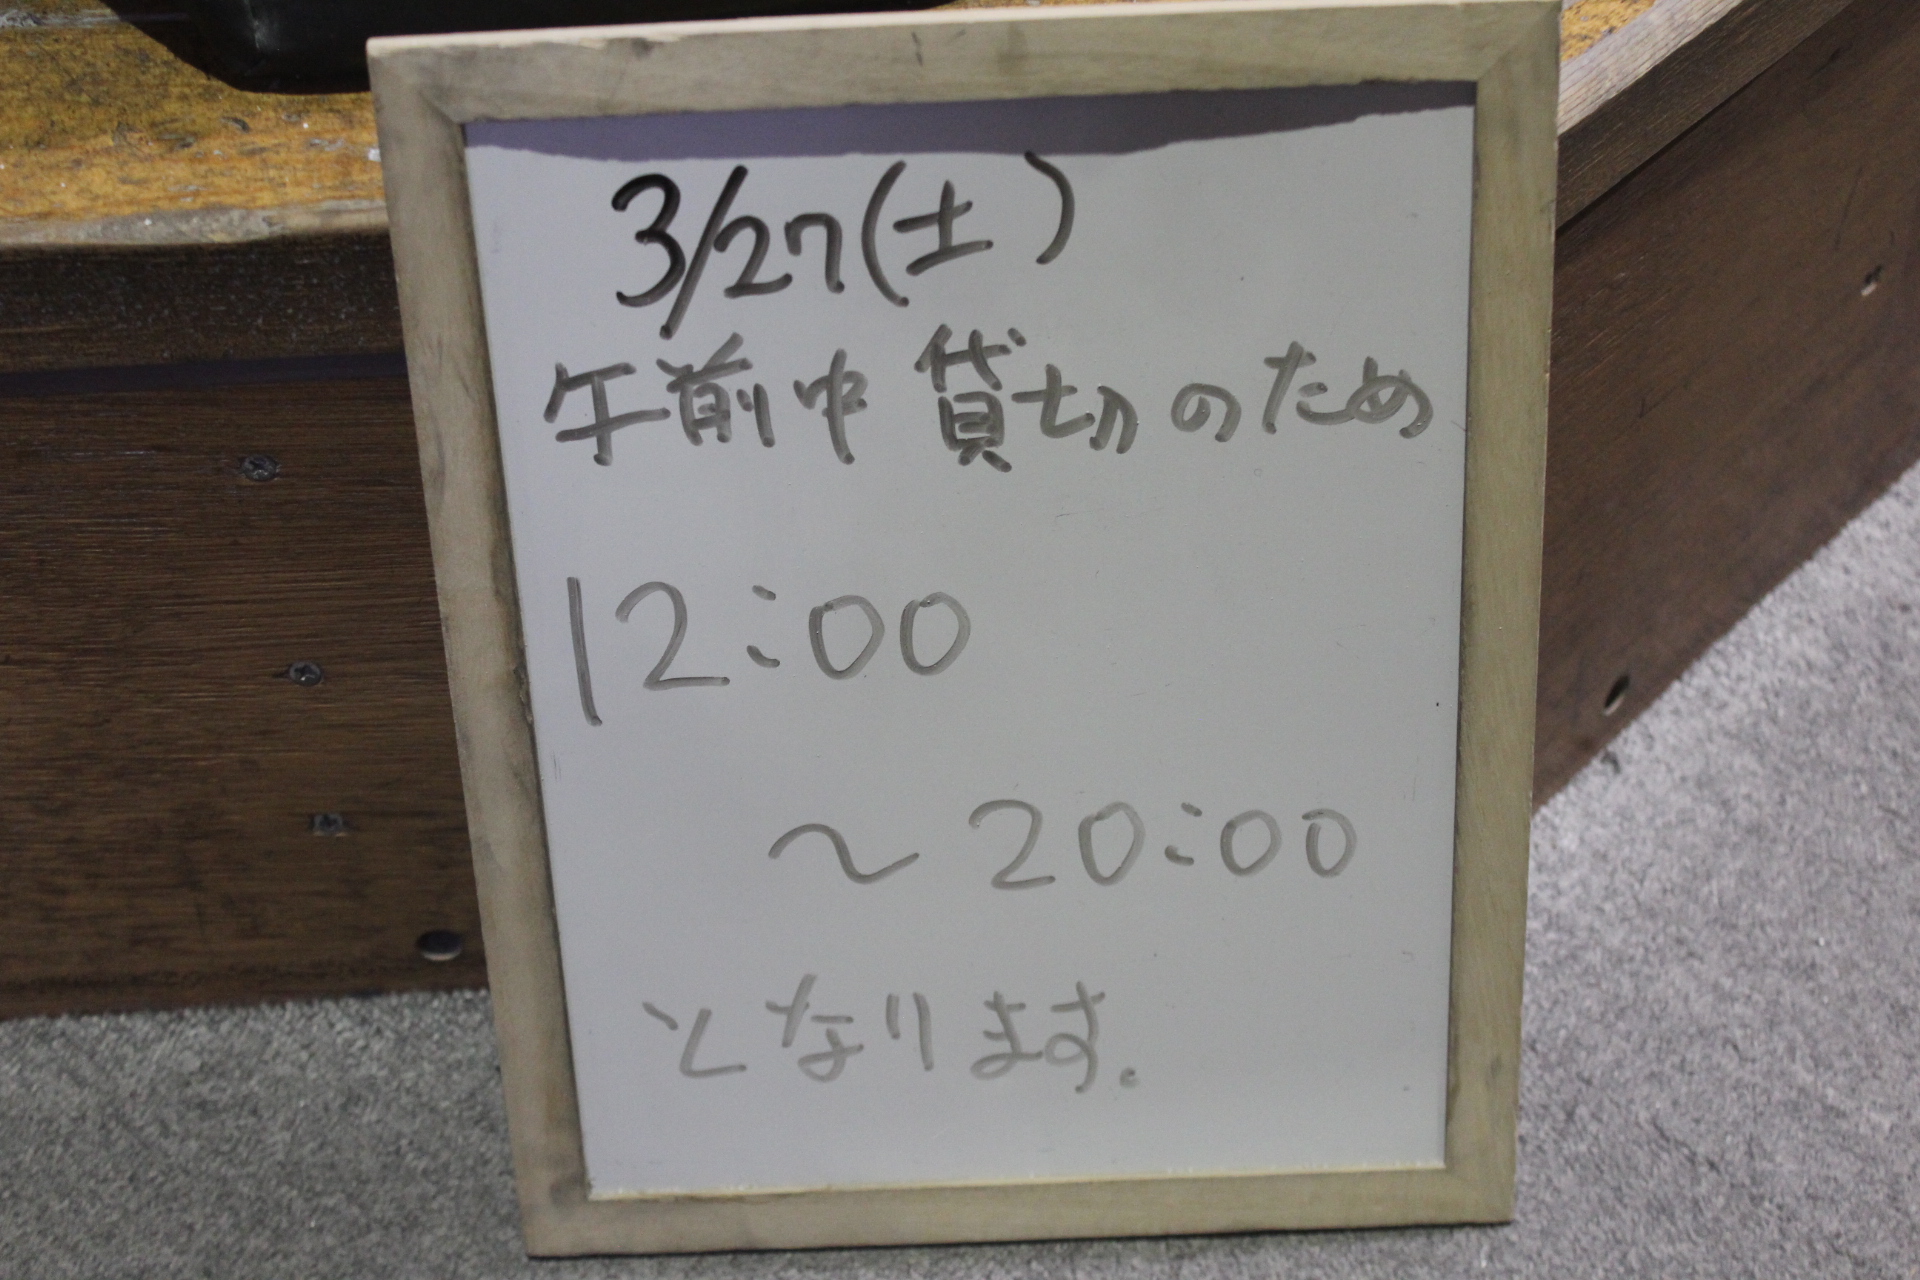 3/27(土)
午前中 貸切のため
12:00
～20:00
となります.